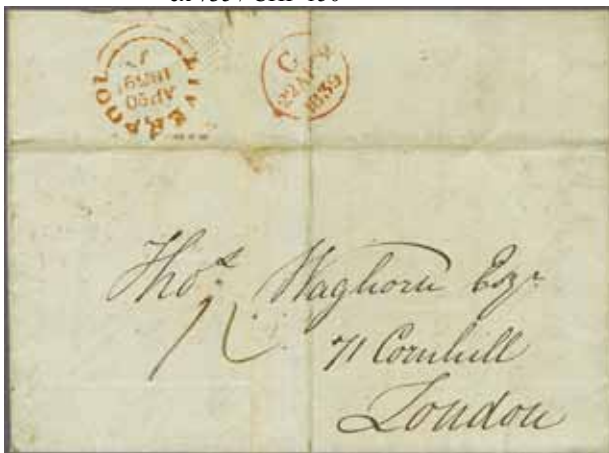 LIVERPOOL
AP 20
1839
G
22 AP 22
1839
Thos Waghorn Esqr
71 Cornhill
London